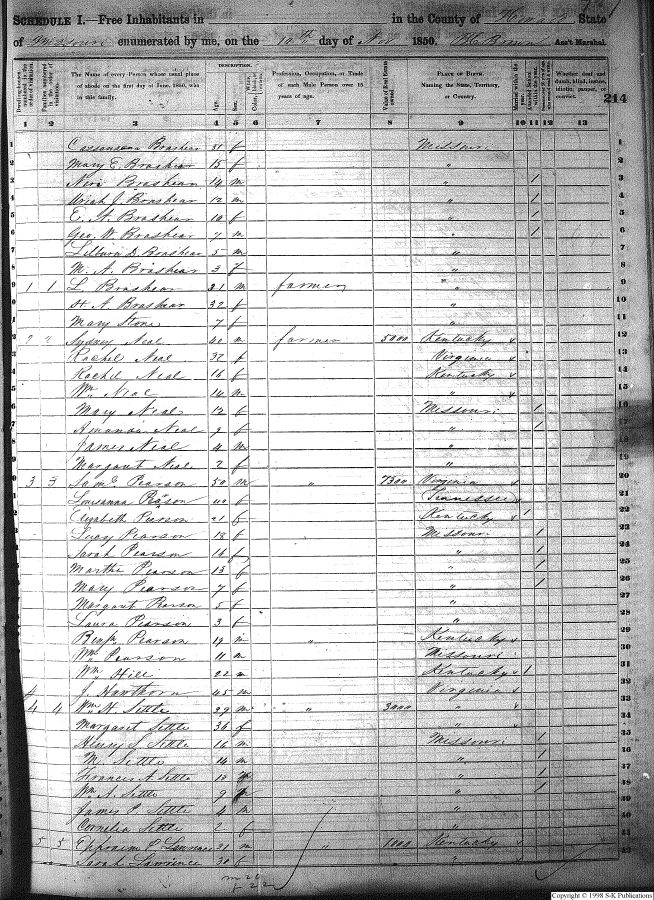 SCHEDULE I.—Free Inhabitants in in the County of Howard State
of Missouri enumerated by me, on the 19th day of Nov 1850. Ass't Marshal.
The Name of every Person whose usual place of abode on the first day of June, 1850, was in this family.
DESCRIPTION.
Age.
Sex.
Profession, Occupation, or Trade of each Male Person over 15 years of age.
Value of Real Estate owned.
PLACE OF BIRTH. Naming the State, Territory, or Country.
Whether deaf and dumb, blind, insane, idiotic, pauper, or convict.
214
1 2 3 4 5 6 7 8 9 10 11 12 13
Brashear f Missouri
Mary E. Brashear 15 f "
Brashear 14 m " 1
Uriah J. Brashear 12 m " 1
E. A. Brashear 10 f " 1
Geo. W. Brashear 7 m " 1
Lilburn D. Brashear 5 m "
M. A. Brashear 3 f "
1 1 L. Brashear 21 m farmer "
H. A. Brashear 32 f "
Mary Stone 7 f "
2 " Sydney Neal 40 m farmer 5000 Kentucky
Rachel Neal 37 f Virginia
Rachel Neal 16 f Kentucky
Wm Neal 14 m "
Mary Neal 12 f Missouri 1
Amanda Neal 9 f " 1
James Neal 4 m "
Margaret Neal 2 f "
3 3 Saml Pearson 50 m " 7500 Virginia
Louisanna Pearson 40 f Tennessee
Elizabeth Pearson 21 f Kentucky 1
Lucy Pearson 18 f Missouri 1
Sarah Pearson 16 f " 1
Martha Pearson 13 f " 1
Mary Pearson 7 f " 1
Margaret Pearson 5 f "
Laura Pearson 3 f "
Benjn Pearson 19 m " Kentucky
Wm Pearson 11 m Missouri
Wm Hill 22 m Kentucky 1
4 J. Hawthorn 45 m Virginia
4 4 Wm H. Settle 39 m " 3000 "
Margaret Settle 36 f "
Henry S. Settle 16 m Missouri 1
M. Settle 14 m " 1
Frances A. Settle 12 f " 1
Wm A. Settle 9 " 1
James P. Settle 4 m "
Cornelia Settle 2 f "
5 5 Ephraim P. Lawrence 31 m " 1000 Kentucky
Sarah Lawrence 30 f "
m 20
f 22
Copyright © 1998 S-K Publications